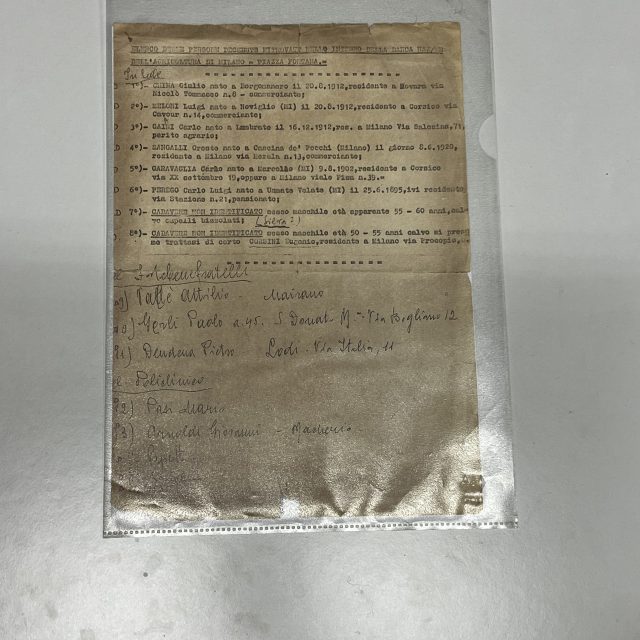 ELENCO DELLE PERSONE DECEDUTE RITROVATE NELLO INTERNO DELLA BANCA NAZION.
DELL'AGRICOLTURA DI MILANO - PIAZZA FONTANA.=
In Sede
1°)- CHINA Giulio nato a Borgomanero il 20.8.1912,residente a Novara via
Nicolò Tommaseo n.8 - commerciante;
2°)- MELONI Luigi nato a Noviglio (MI) il 20.8.1912,residente a Corsico via
Cavour n.14,commerciante;
3°)- GAINI Carlo nato a Lambrate il 16.12.1912,res. a Milano Via Salesina,71,
perito agrario;
4°)- SANGALLI Oreste nato a Cascina de' Pecchi (Milano) il giorno 8.6.1920,
residente a Milano via Merula n.13,commerciante;
5°)- GARAVAGLIA Carlo nato a Marcelho (MI) 9.8.1902,residente a Corsico
via XX settembre 19,oppure a Milano viale Pisa n.39.=
6°)- PEREGO Carlo Luigi nato a Usmate Velate (MI) il 25.6.1895,ivi residente
via Stazione n.21,pensionato;
7°)- CADAVERE NON IDENTIFICATO sesso maschile età apparente 55 - 60 anni,cal
vo capelli bizzolati;
8°)- CADAVERE NON IDENTIFICATO sesso maschile età 50 - 55 anni calvo si presu
me trattasi di certo CORSINI Eugenio,residente a Milano via Procopio,
Fatebenefratelli
Tatlè Attilio - Mairano
Gerli Paolo a.45. S. Donat. M. Via 12
Dendena Pietro Lodi - Via Italia, 11
Policlinico
Pasi Mario
Arnoldi Giovanni - Maghero